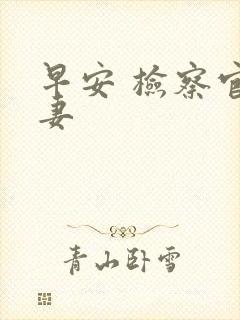 早安 檢察官
妻
青山卧雪